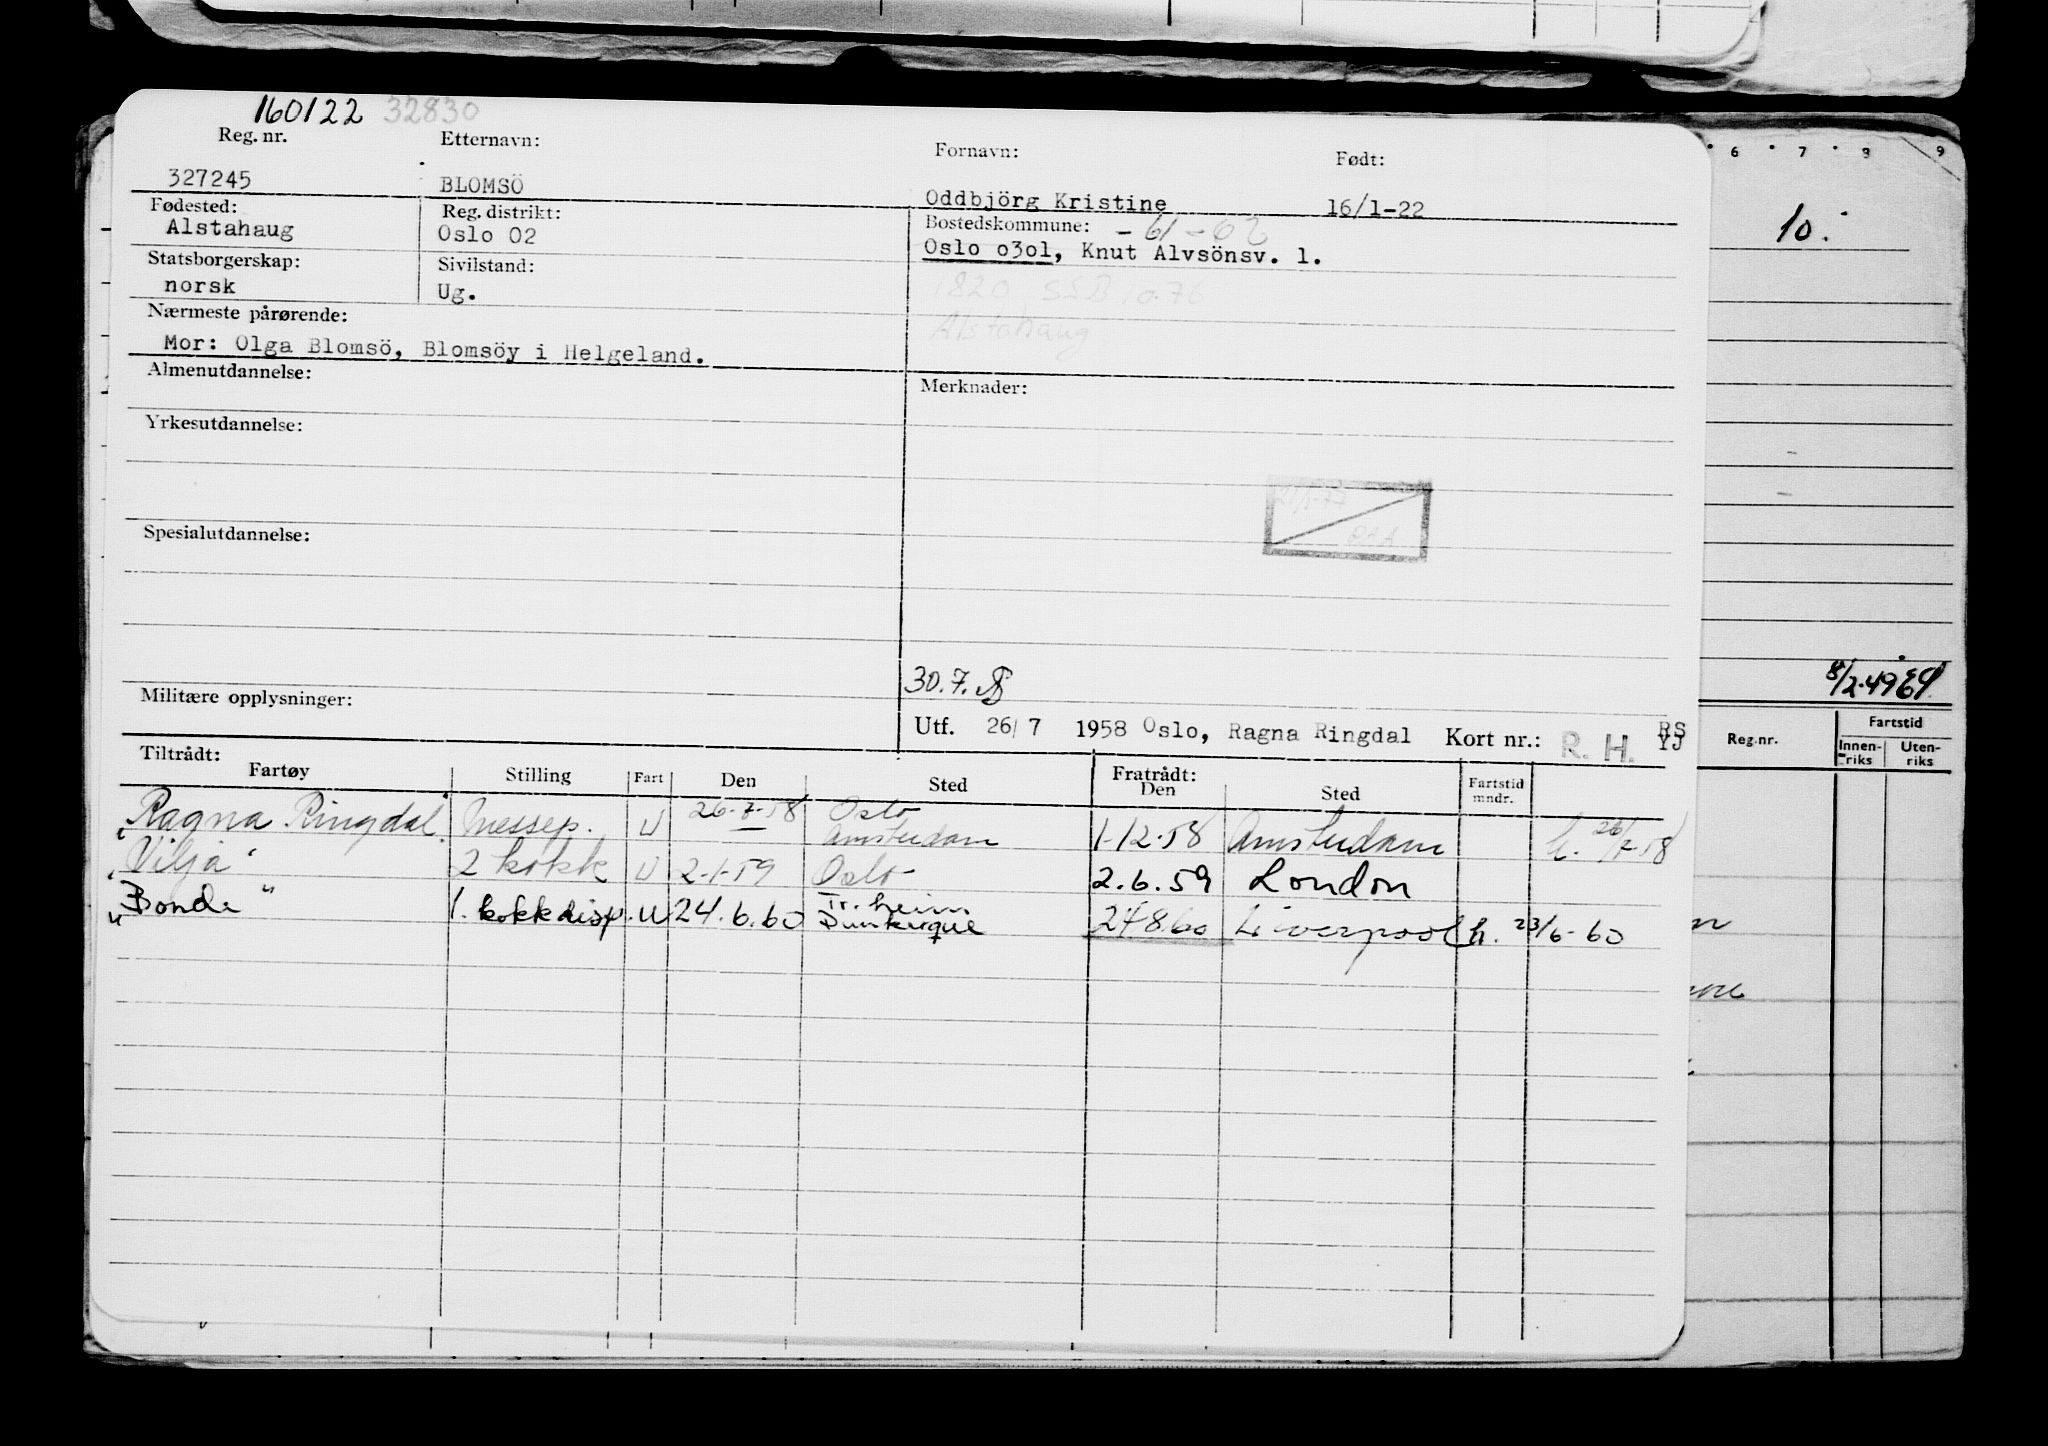 160122 32830
Reg. nr. Etternavn: Fornavn: Født:
327245 BLOMSÖ Oddbjörg Kristine 16/1-22
Fødested: Reg. distrikt: Bostedskommune: -61-62
Alstahaug Oslo 02 Oslo o3o1, Knut Alvsönsv. 1.
Statsborgerskap: Sivilstand:
norsk Ug. 1820 SSB 10.76
Nærmeste pårørende: Alstahaug
Mor: Olga Blomsö, Blomsöy i Helgeland.
Almenutdannelse: Merknader:
Yrkesutdannelse:
Spesialutdannelse:
30.7.
Militære opplysninger:
Utf. 26/7 1958 Oslo, Ragna Ringdal Kort nr.: R. H. RS YJ
Tiltrådt: Fratrådt:
Fartøy Stilling Fart Den Sted Den Sted Fartstid mndr.
Ragna Ringdal Messep. U 26-7-58 Oslo Amsterdam 1-12-58 Amsterdam h. 26/7-58
"Vilja" 2 kokk U 2-1-59 Oslo 2.6.59 London
"Bonde" 1. kokk disp. U 24.6.60 Tr.heim Dunkerque 24.8.60 Liverpool h. 23/6-60
6 7 8 9
10.
8/2-49
Reg.nr. Fartstid
Innen-riks Uten-riks